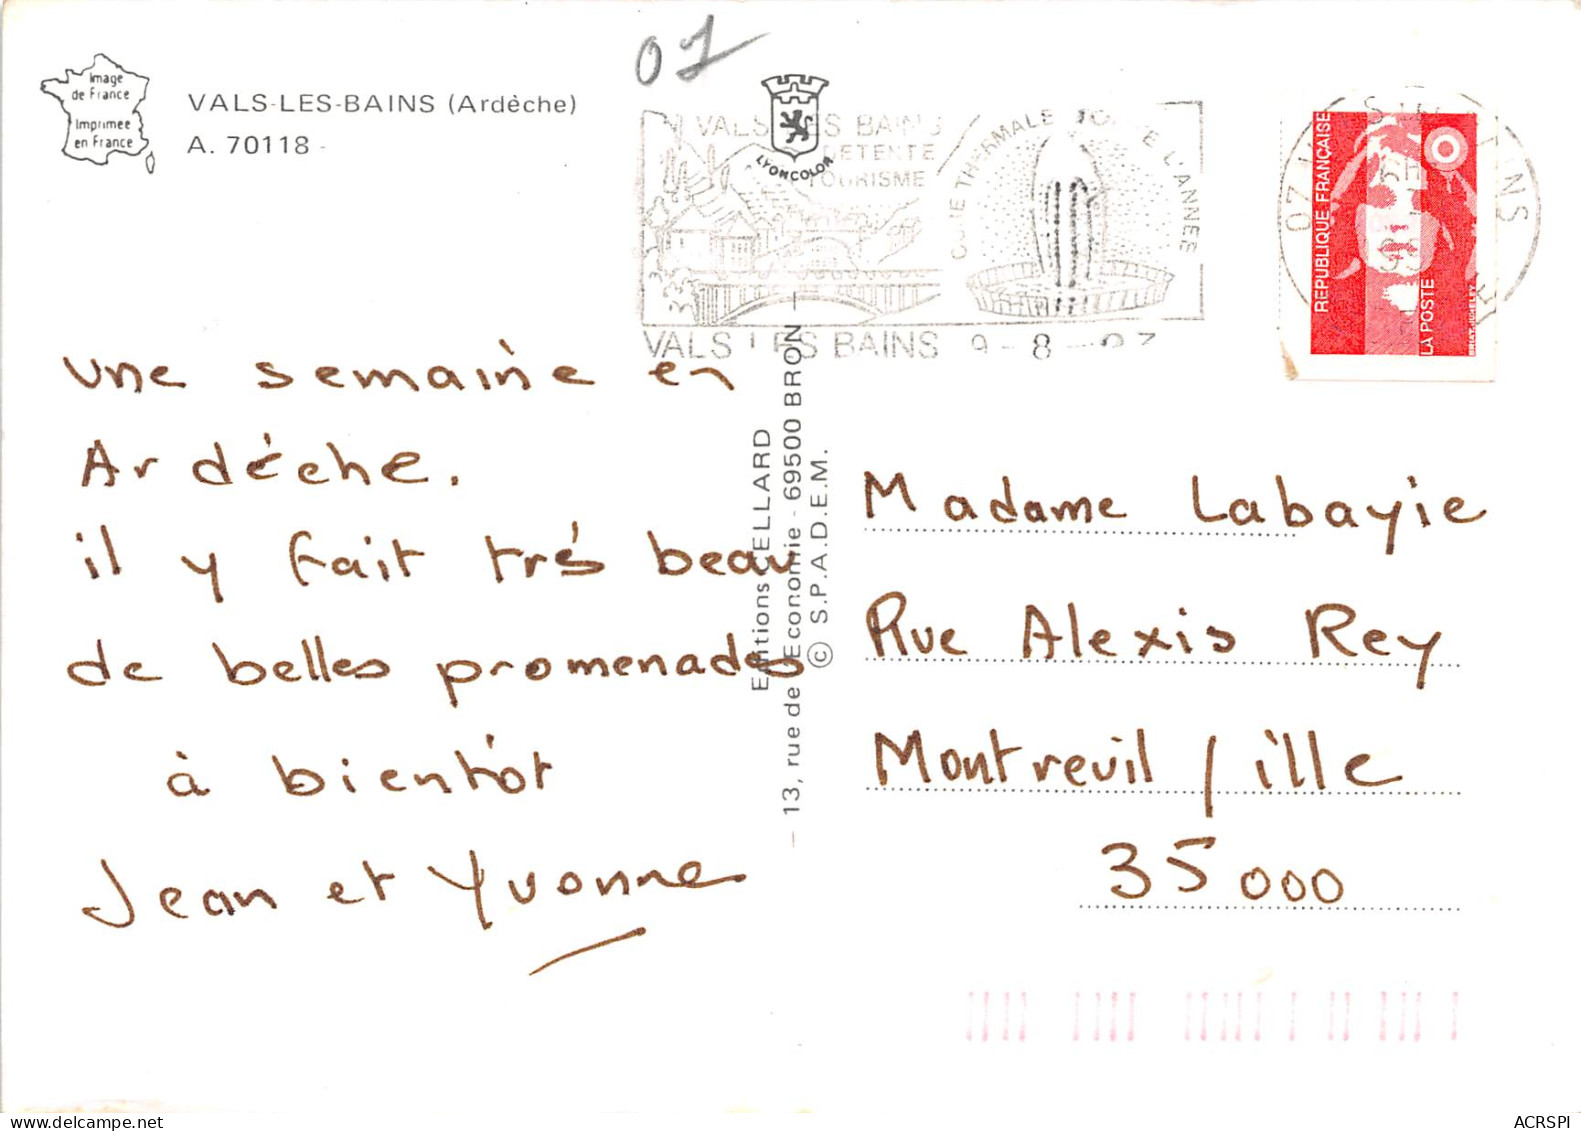 07
Image
de France
Imprimée
en France
VALS-LES-BAINS (Ardèche)
A. 70118 -
LYONCOLOR
DETENTE
TOURISME
THERMALE
L'ANNEE
VALS LES BAINS 9 - 8 -
RÉPUBLIQUE FRANÇAISE
LA POSTE
07
une semaine en
Ardéche.
il y fait trés beau
de belles promenades
à bientôt
Jean et Yvonne
Editions CELLARD
— 13, rue de l'Economie - 69500 BRON —
© S.P.A.D.E.M.
Madame Labayie
Rue Alexis Rey
Montreuil / ille
35000
ACRSPI